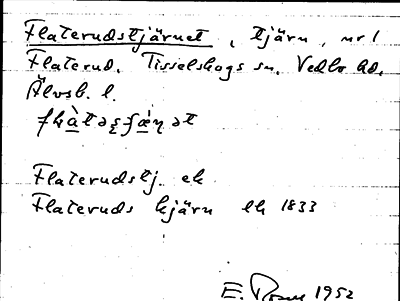 Flaterudstjärnet, tjärn, nr 1
Flaterud. Tisselskogs sn. Vedbo hd.
Älvsb. l.
Flaterudstj. ek
Flateruds kjärn lk 1833
E. Rosen 1952